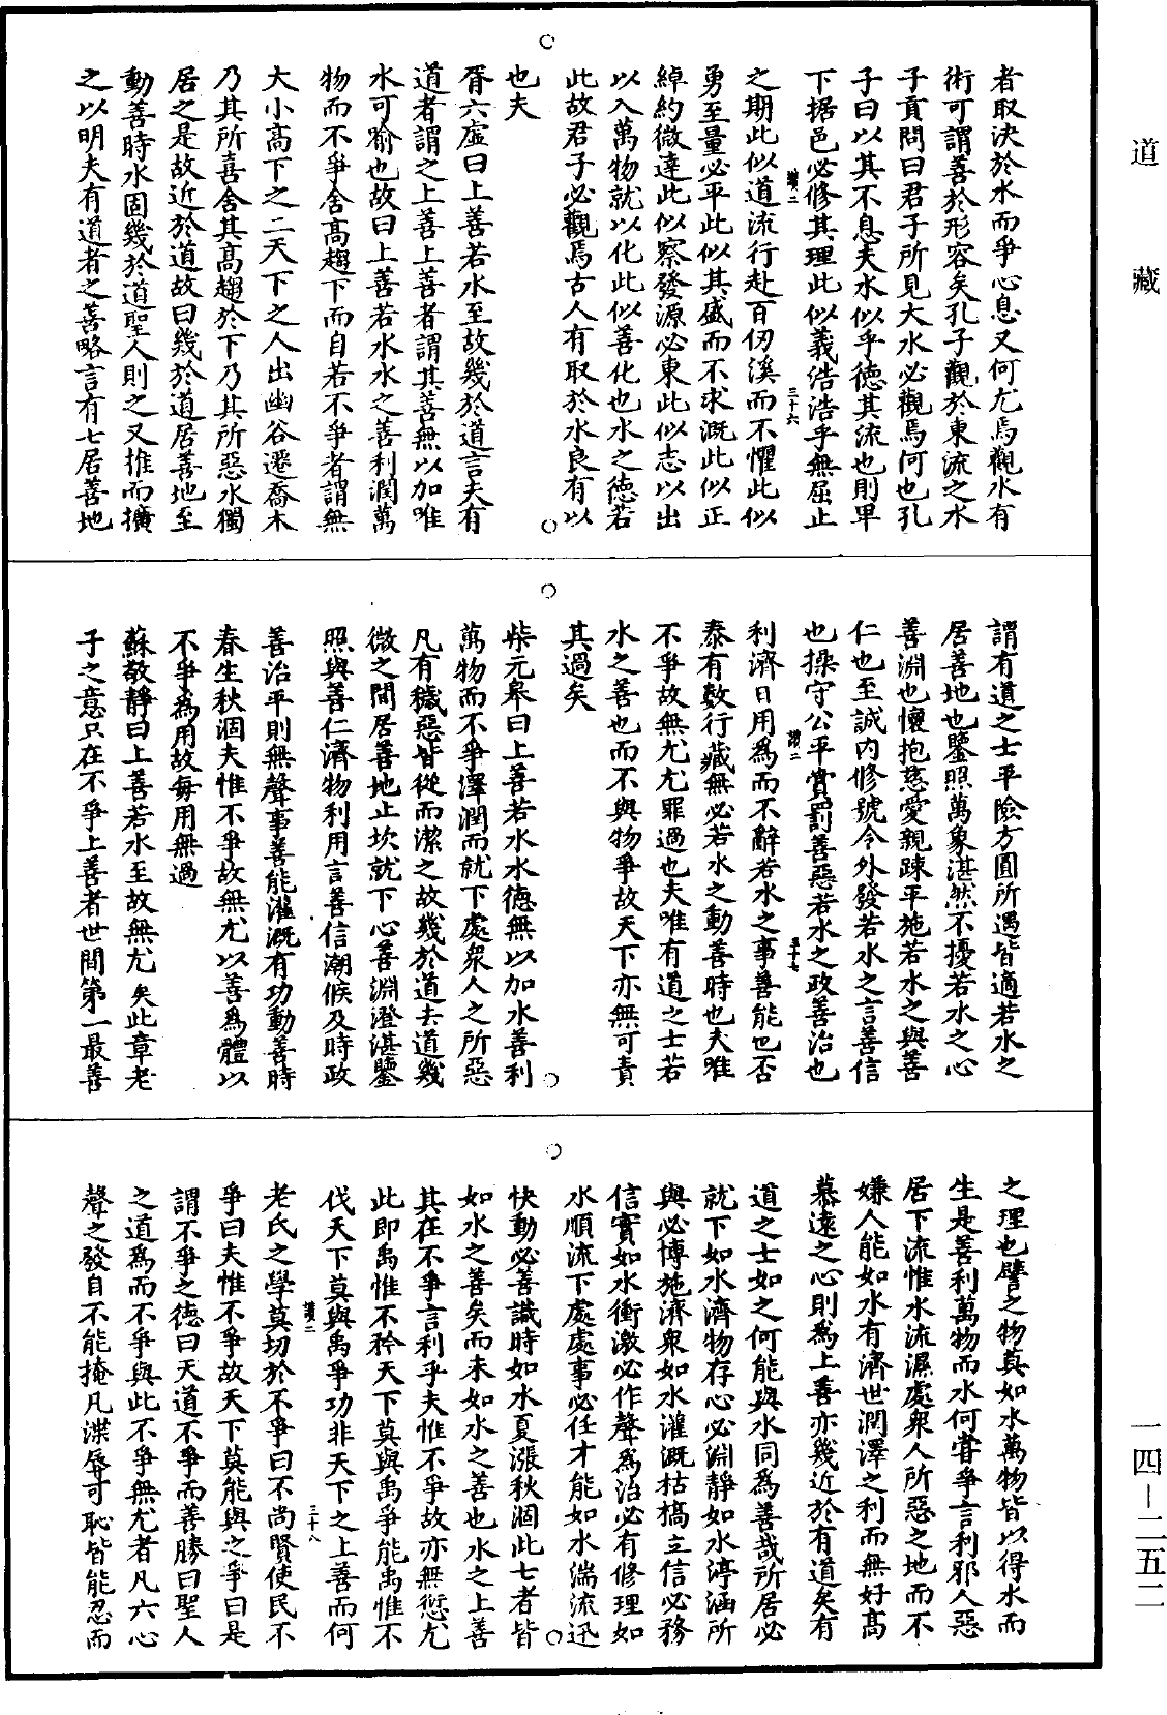 道藏
者取決於水而爭心息又何尤焉觀水有
術可謂善於形容矣孔子觀於東流之水
子貢問曰君子所見大水必觀焉何也孔
子曰以其不息夫水似乎德其流也則卑
下据邑必修其理此似義浩浩乎無屈止
讃二
三十六
之期此似道流行赴百仞溪而不懼此似
勇至量必平此似其盛而不求溉此似正
綽約微達此似察發源必東此似志以出
以入萬物就以化此似善化也水之德若
此故君子必觀焉古人有取於水良有以
也夫
胥六虛曰上善若水至故幾於道言夫有
道者謂之上善上善者謂其善無以加唯
水可喻也故曰上善若水水之善利潤萬
物而不爭舍高趨下而自若不爭者謂無
大小高下之二天下之人出幽谷遷喬木
乃其所喜舍其高趨於下乃其所惡水獨
居之是故近於道故曰幾於道居善地至
動善時水固幾於道聖人則之又推而擴
之以明夫有道者之善略言有七居善地
謂有道之士平險方圓所遇皆適若水之
居善地也鑒照萬象湛然不擾若水之心
善淵也懷抱慈愛親踈平施若水之與善
仁也至誠內修號令外發若水之言善信
也操守公平賞罰善惡若水之政善治也
讃二
三十七
利濟日用為而不辭若水之事善能也否
泰有數行藏無必若水之動善時也夫唯
不爭故無尤尤罪過也夫唯有道之士若
水之善也而不與物爭故天下亦無可責
其過矣
柴元皋曰上善若水水德無以加水善利
萬物而不爭澤潤而就下處衆人之所惡
凡有穢惡皆從而潔之故幾於道去道幾
微之間居善地止坎就下心善淵澄湛鑒
照與善仁濟物利用言善信潮候及時政
善治平則無聲事善能灌溉有功動善時
春生秋涸夫惟不爭故無尤以善為體以
不爭為用故每用無過
蘇敬靜曰上善若水至故無尤矣此章老
子之意只在不爭上善者世間第一最善
之理也譬之物莫如水萬物皆以得水而
生是善利萬物而水何嘗爭言利邪人惡
居下流惟水流濕處衆人所惡之地而不
嫌人能如水有濟世潤澤之利而無好高
慕遠之心則為上善亦幾近於有道矣有
道之士如之何能與水同為善哉所居必
就下如水濟物存心必淵靜如水渟涵所
與必博施濟衆如水灌溉枯槁立信必務
信實如水衝激必作聲為治必有修理如
水順流下處處事必任才能如水湍流迅
快動必善識時如水夏漲秋涸此七者皆
如水之善矣而未如水之善也水之上善
其在不爭言利乎夫惟不爭故亦無愆尤
此即禹惟不矜天下莫與禹爭能禹惟不
伐天下莫與禹爭功非天下之上善而何
讃二
三十八
老氏之學莫切於不爭曰不尚賢使民不
爭曰夫惟不爭故天下莫能與之爭曰是
謂不爭之德曰天道不爭而善勝曰聖人
之道為而不爭與此不爭無尤者凡六心
聲之發自不能掩凡渫辱可恥皆能忍而
一四—二五二